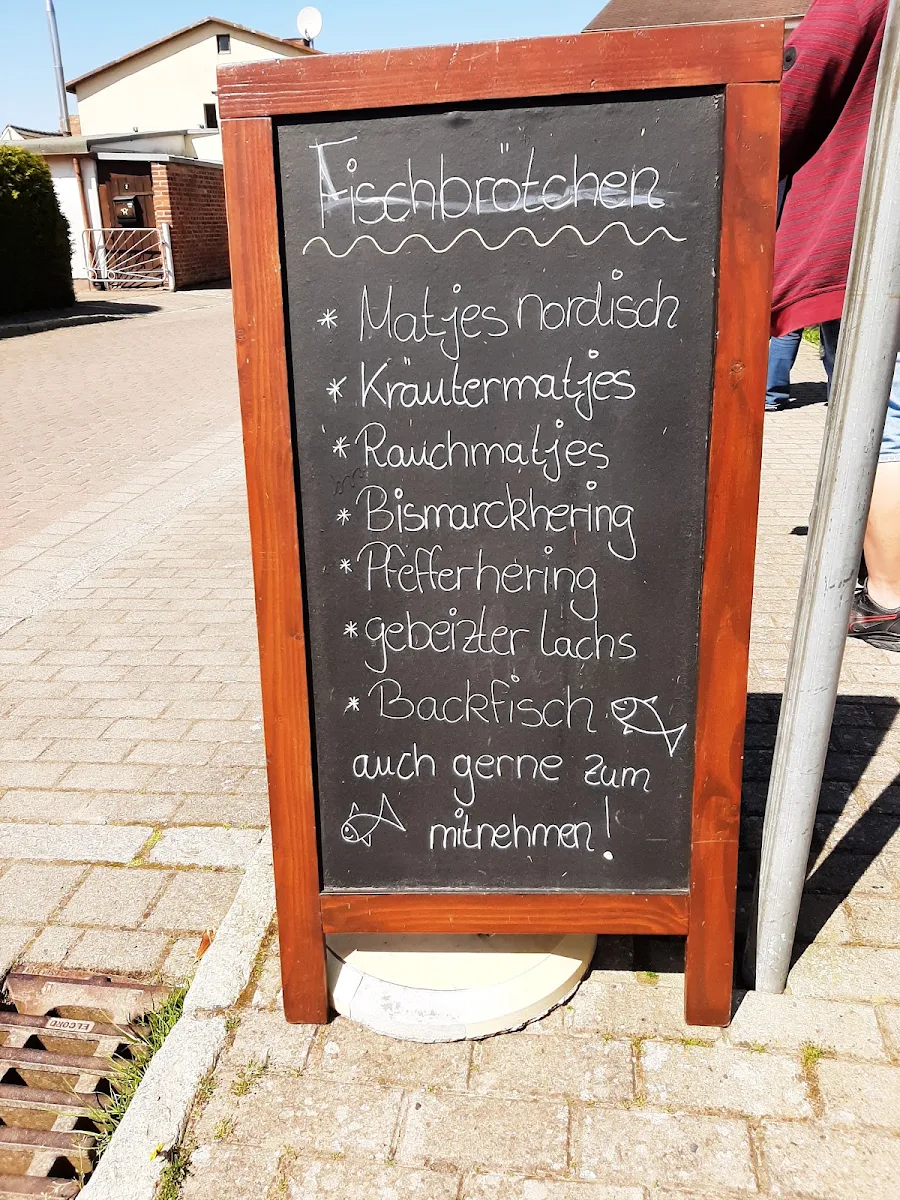 Fischbrötchen
* Matjes nordisch
* Kräutermatjes
* Rauchmatjes
* Bismarckhering
* Pfefferhering
* gebeizter Lachs
* Backfisch
auch gerne zum
mitnehmen!
ELCORD